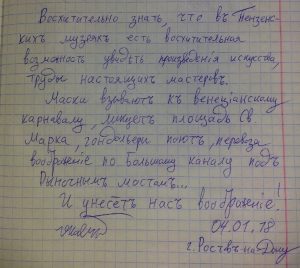 Восхитительно знать, что въ Пензенс-
кихъ музеяхъ есть восхитительная
возможность увидеть произведения искусства,
труды настоящихъ мастеровъ.
Маски взываютъ къ венецiанскому
карнавалу, площадь Св
Марка, гондольеры поютъ,
воображение по большому каналу подъ
Рыночнымъ мостамъ...
И унесетъ насъ воображение!
04.01.18
г. Ростовъ-на-Дону